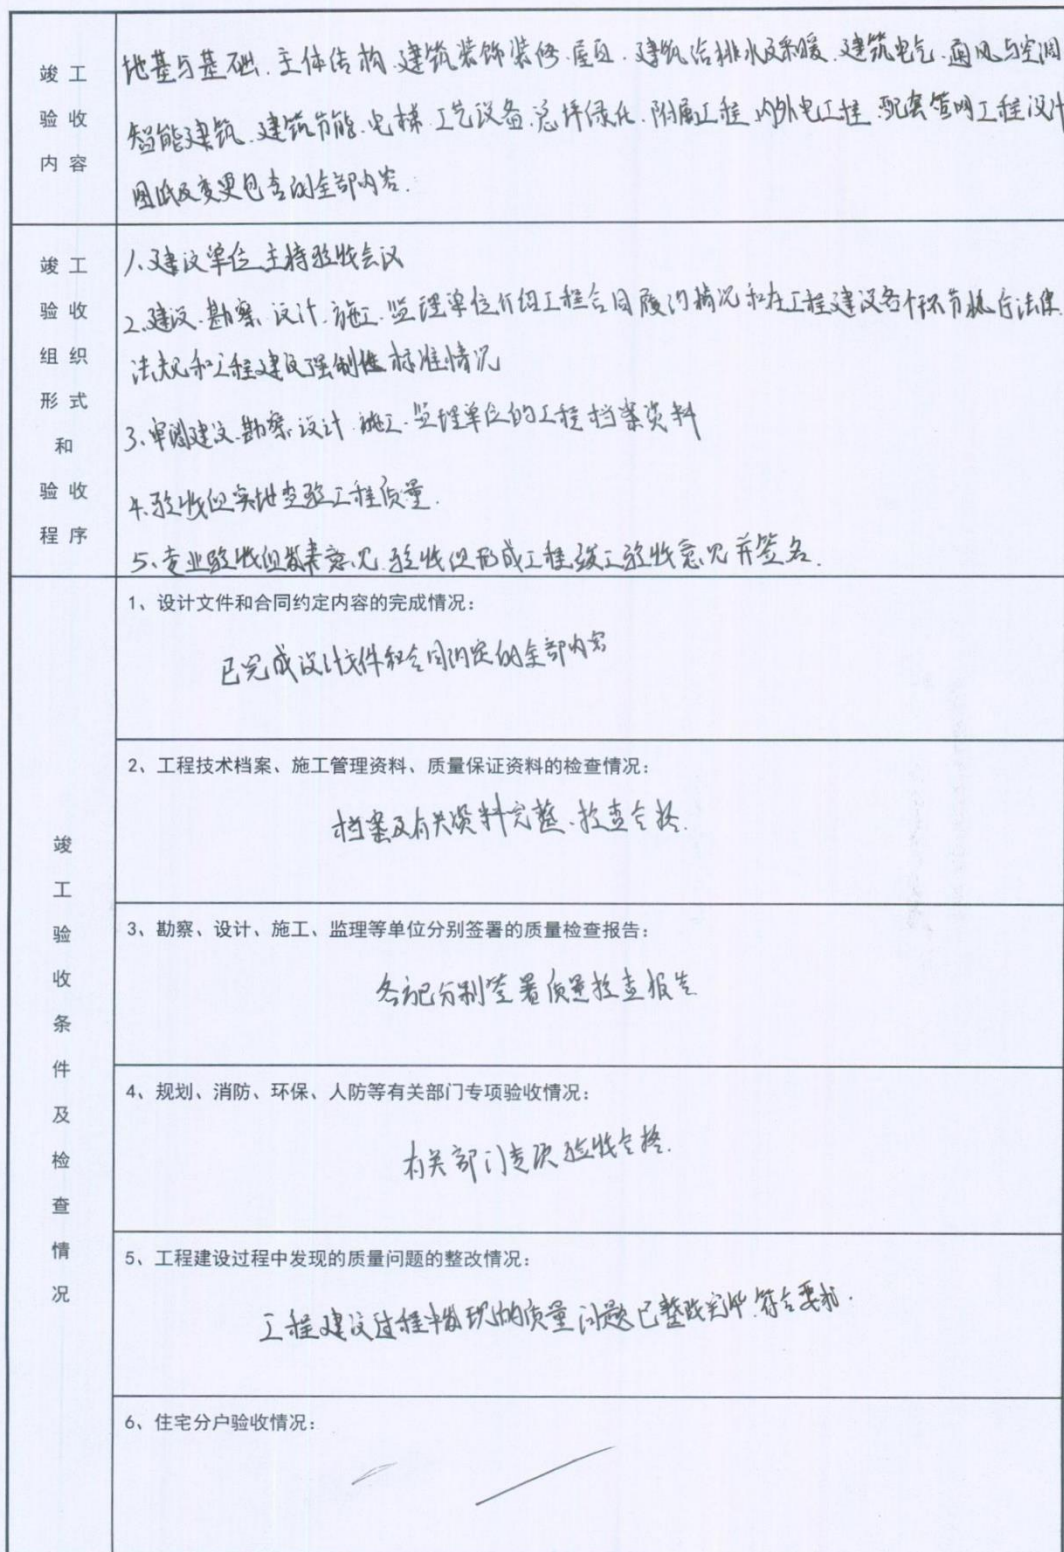 竣工
验收
内容
地基与基础、主体结构、建筑装饰装修、屋面、建筑给排水及采暖、建筑电气、通风与空调
智能建筑、建筑节能、电梯、工艺设备、总坪绿化、附属工程、内外电工程、配套管网工程设计
图纸及变更包含的全部内容.
竣工
验收
组织
形式
和
验收
程序
1、建设单位主持验收会议
2、建设、勘察、设计、施工、监理单位介绍工程合同履约情况和在工程建设各个环节执行法律、
法规和工程建设强制性标准情况
3、审阅建设、勘察、设计、施工、监理单位的工程档案资料
4、验收组实地查验工程质量.
5、专业验收组发表意见、验收组形成工程竣工验收意见并签名.
竣
工
验
收
条
件
及
检
查
情
况
1、设计文件和合同约定内容的完成情况：
已完成设计文件和合同约定的全部内容
2、工程技术档案、施工管理资料、质量保证资料的检查情况：
档案及有关资料完整、检查合格.
3、勘察、设计、施工、监理等单位分别签署的质量检查报告：
各方已分别签署质量检查报告
4、规划、消防、环保、人防等有关部门专项验收情况：
有关部门专项验收合格.
5、工程建设过程中发现的质量问题的整改情况：
工程建设过程中发现的质量问题已整改完毕、符合要求.
6、住宅分户验收情况：